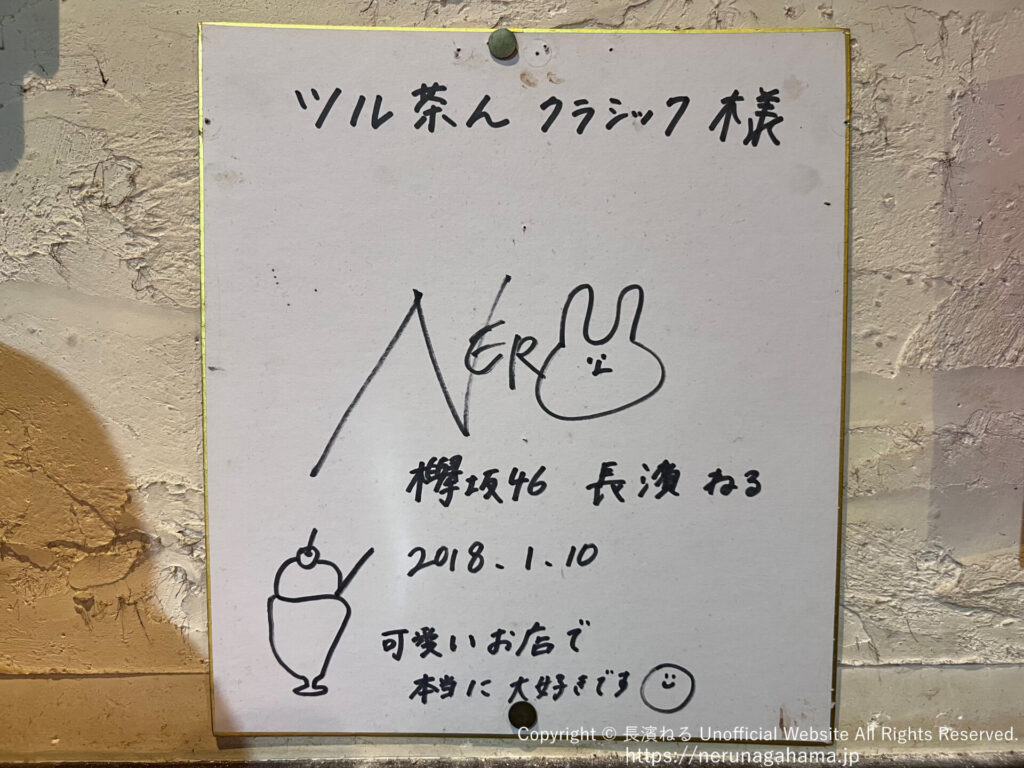 ツル茶ん クラシック 様
NER
欅坂46 長濱 ねる
2018.1.10
可愛いお店で
本当に 大好きです
Copyright © 長濱ねる Unofficial Website All Rights Reserved.
https://nerunagahama.jp